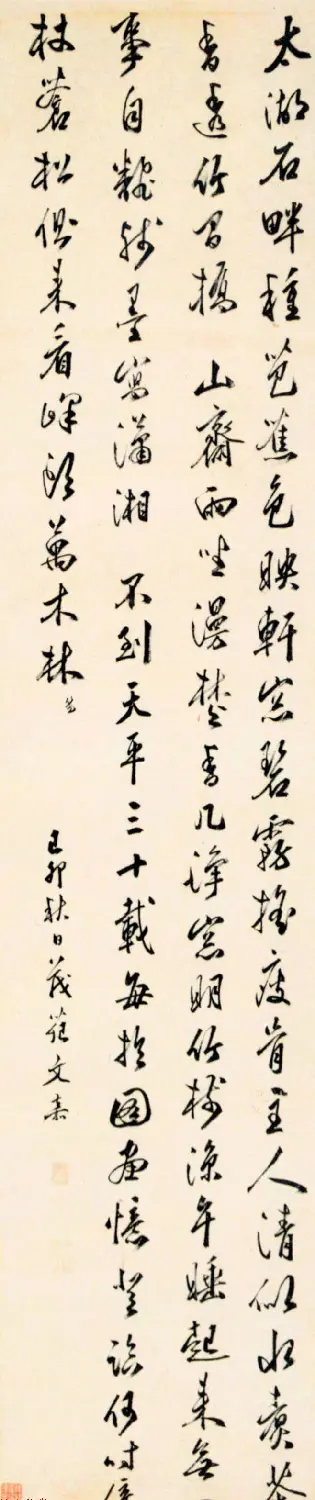 太湖石畔種芭蕉色映軒窓碧霧搖瘦骨主人清似水煑茶
香透竹間橋 山齋雨坐漫焚香几淨窓明竹樹涼午睡起來無
事自殘墨寫瀟湘 不到天平三十載每於圖畫憶登臨何時
杖蒼松側來看峰頭萬木林
己卯秋日茂苑文嘉